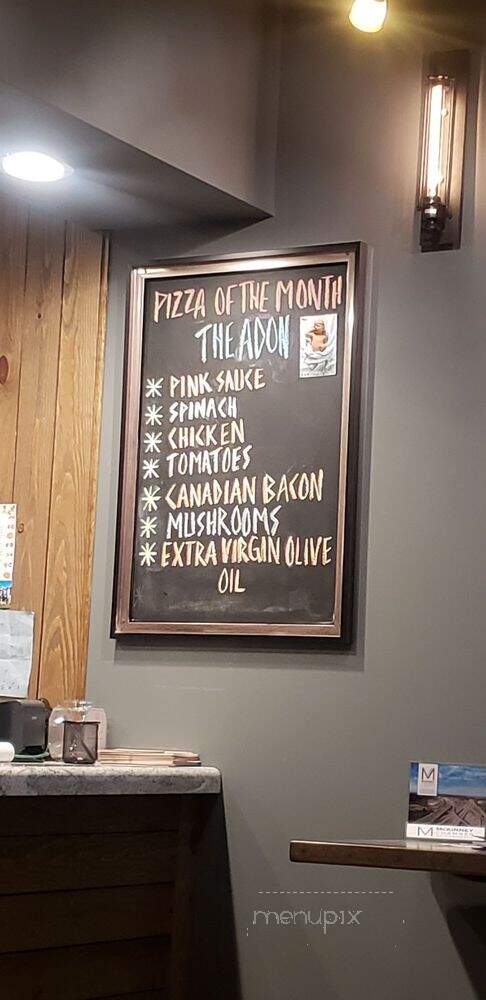 PIZZA OF THE MONTH
THE ADON
* PINK SAUCE
* SPINACH
* CHICKEN
* TOMATOES
* CANADIAN BACON
* MUSHROOMS
* EXTRA VIRGIN OLIVE
OIL
M
M MCKINNEY
menupix